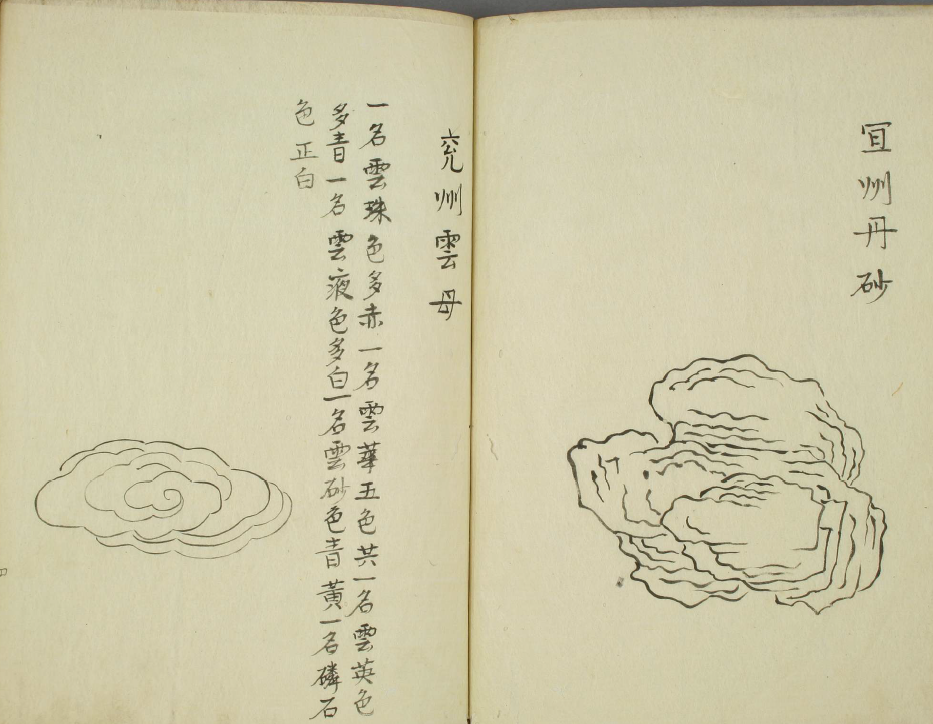 冝州丹砂
兖州雲母
一名雲珠色多赤一名雲華五色共一名雲英色
多青一名雲液色多白一名雲砂色青黃一名磷石
色正白